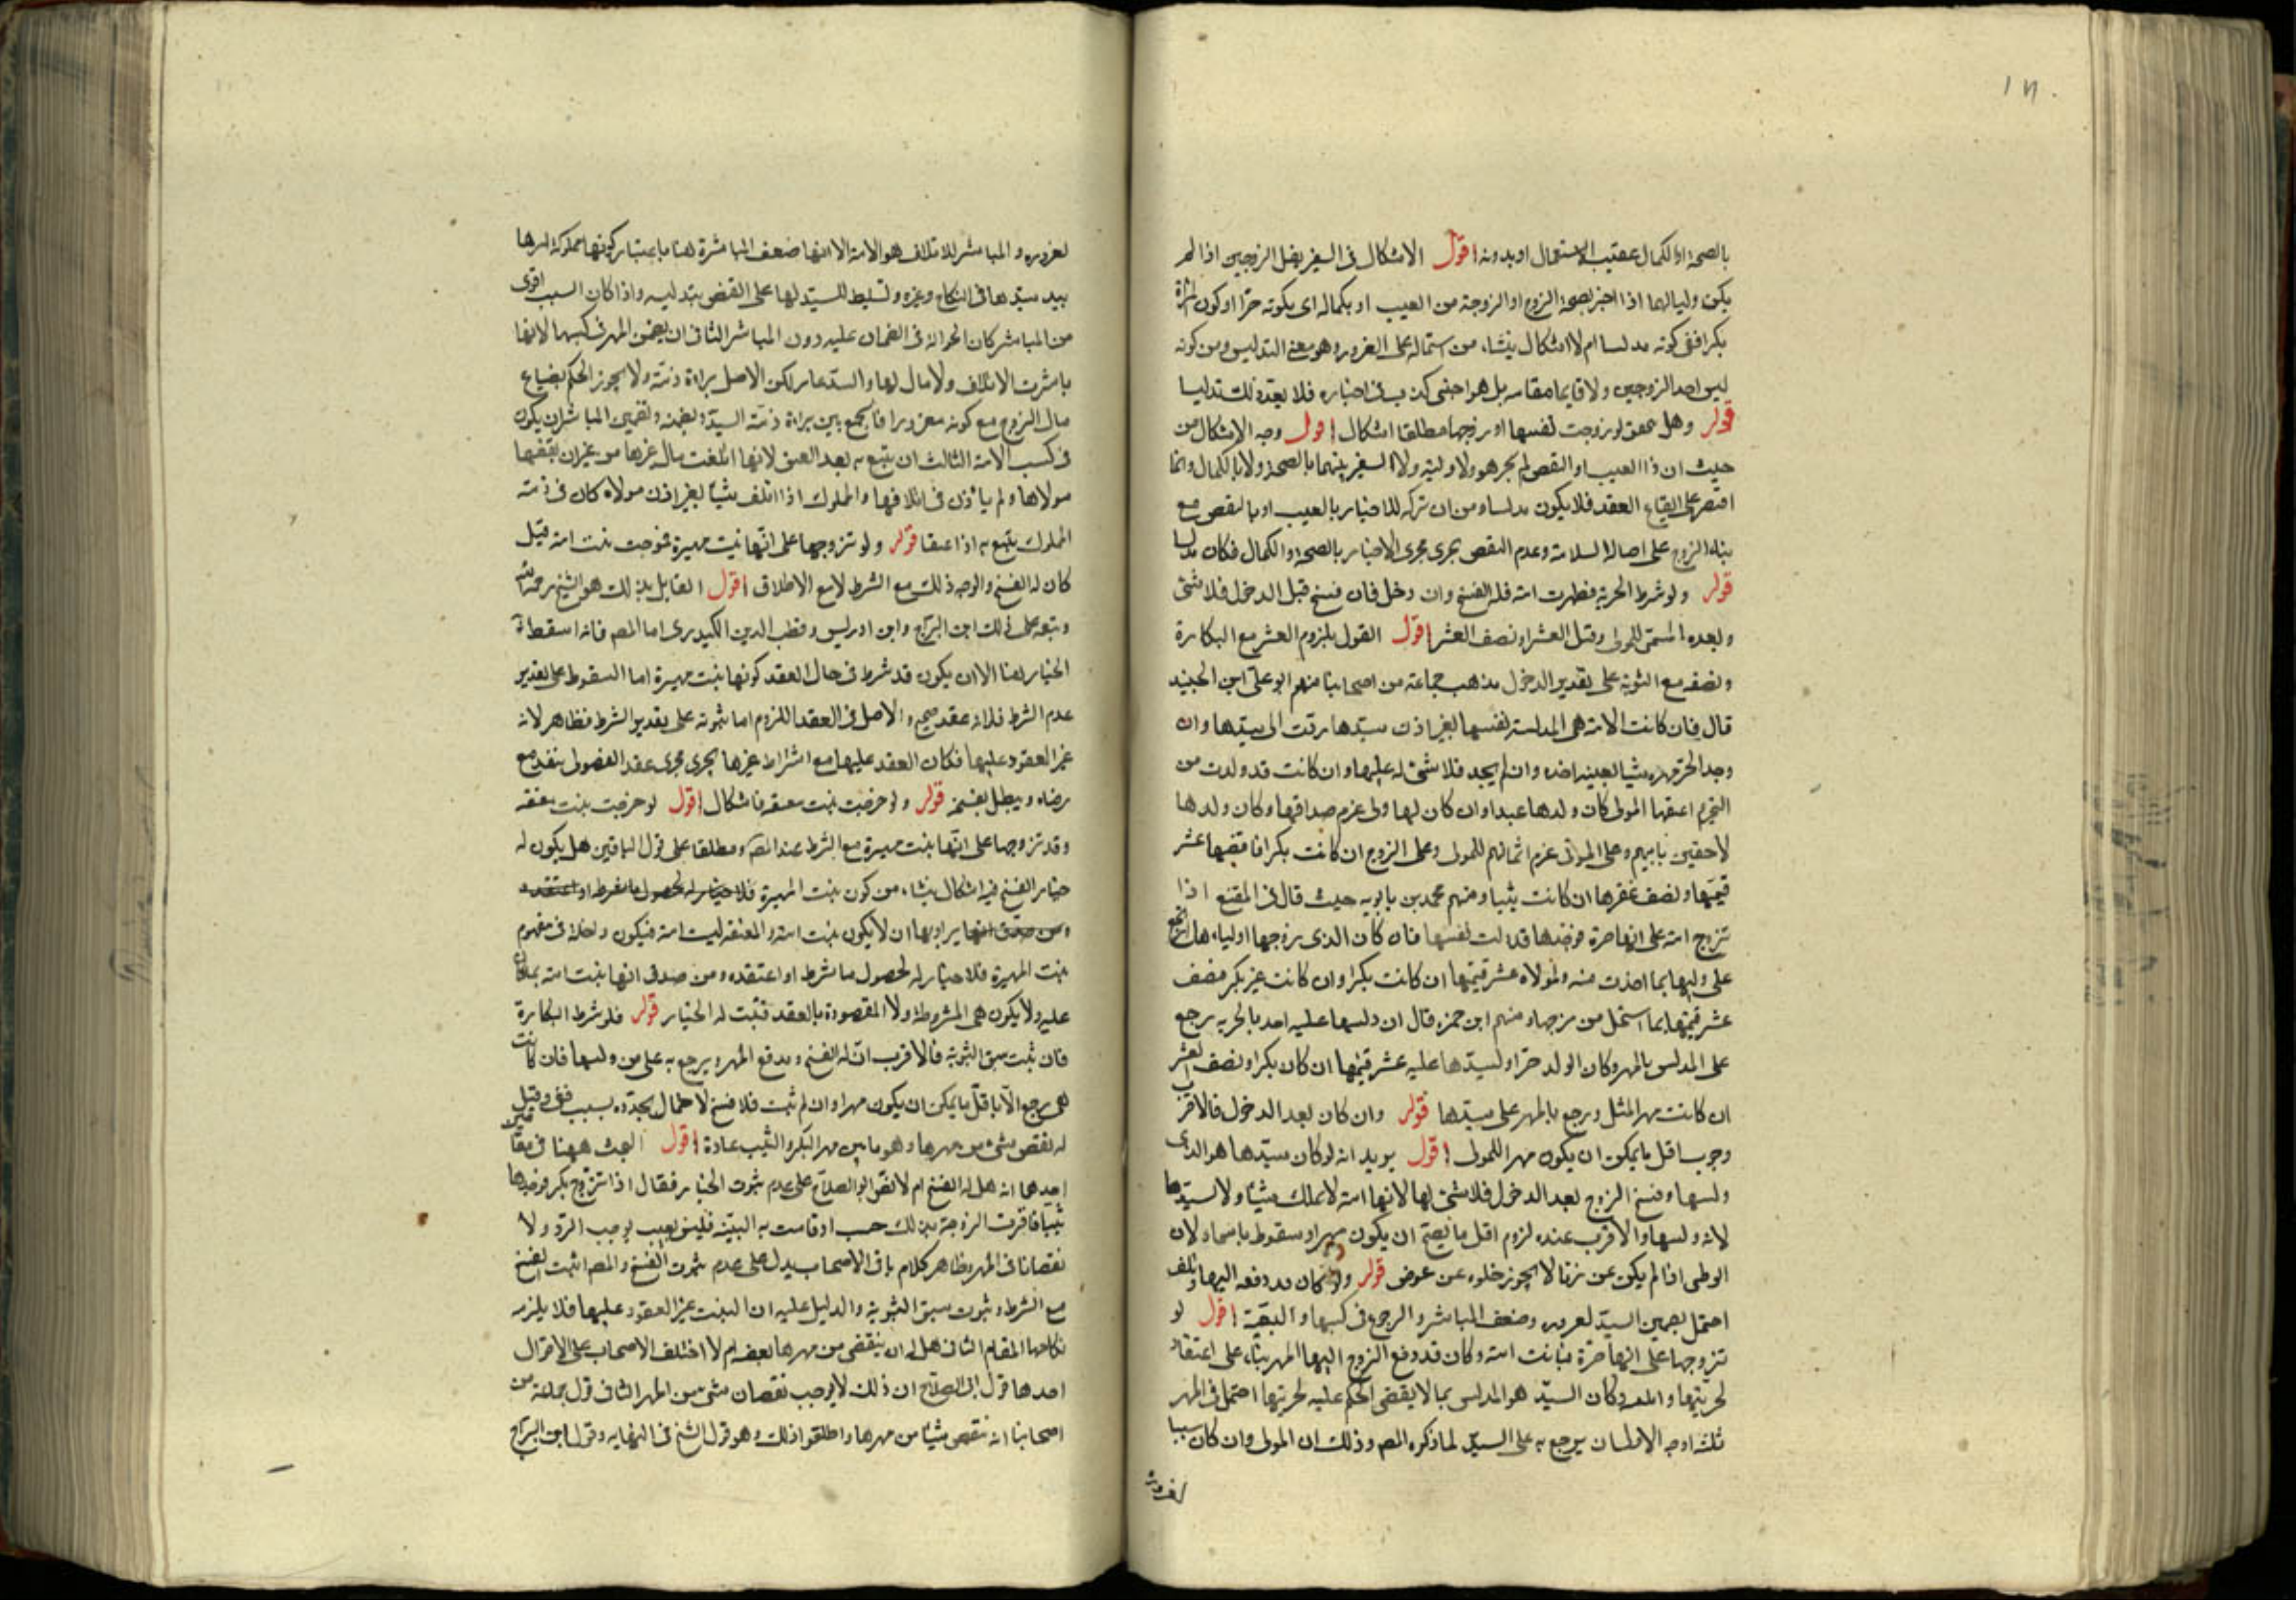 بالصحة او الكمال عقيب الاستعمال او بدونه اقول الاشكال فى السفير بغل الزوجين اذا لم
يكن وليا لهما اذا اخبر بصحة الزوج او الزوجة من العيب او بكماله اى بكونه حرّا او كون المرأة
بكرا ففى كونه مدلسا ام لا اشكال ينشاء من اشتماله على الغرور وهو معنى التدليس ومن كونه
ليس احد الزوجين ولا قايما مقامه بل هو اجنبى كذب فى اخباره فلا يعدّ ذلك تدليسا
قوله وهل يتحقق لو زوجت نفسها او زوجها مطلقا اشكال اقول وجه الاشكال من
حيث ان ذا العيب او النقص لم يجر هو ولا وليّه ولا السفير بينهما بالصحة ولا بالكمال وانما
اقتصر على ايقاع العقد فلا يكون مدلسا ومن ان تركه للاخبار بالعيب او بالنقص مع
بناء الزوج على اصالة السلامة وعدم النقص يجرى مجرى الاخبار بالصحة والكمال فكان مدلسا
قوله ولو شرط الحرية فظهرت امة فله الفسخ وان دخل فان فسخ قبل الدخول فلا شئ
وبعده المسمّى للمولى وقيل العشر او نصف العشر اقول القول بلزوم العشر مع البكارة
ونصفه مع الثيوبة على تقدير الدخول مذهب جماعة من اصحابنا منهم ابو على ابن الجنيد
قال فان كانت الامة هى المدلسة لنفسها بغير اذن سيّدها ردّت الى سيّدها وان
وجد الحرّ مهره شيا بعينه اخذه وان لم يجد فلا شئ له عليها وان كانت قد ولدت من
التحرم اعتقها المولى كان ولدها عبدا وان كان لها ولى غرم صداقها وكان ولدها
لاحقين بابيهم وعلى المولى غرم اثمانهم للمولى وعلى الزوج ان كانت بكرا فاقتضها عشر
قيمتها ونصف عقرها ان كانت ثيبا ومنهم محمد بن بابويه حيث قال فى المقنع اذا
تزوج امة على انها حرة فوجدها قد دلست نفسها فان كان الذى زوجها اولياءه ارتجع
على وليها بما اخذت منه ولمولاه عشر قيمتها ان كانت بكرا وان كانت غير بكر فنصف
عشر قيمتها بما استحل من فرجها ومنهم ابن حمزة قال ان دلسها عليه احد بالحرية رجع
على المدلس بالمهر وكان الولد حرّا ولسيّدها عليه عشر قيمتها ان كان بكرا ونصف العشر
ان كانت مهر المثل ويرجع بالمهر على سيّدها قوله وان كان بعد الدخول فالاقرب
وجوب اقل ما يمكن ان يكون مهرا للمولى اقول يريد انه لو كان سيّدها هو الذى
دلسها وفسخ الزوج بعد الدخول فلا شئ لها لانها امة لا تملك شيئا ولا لسيّدها
لانه دلسها والاقرب عنده لزوم اقل ما يصحّ ان يكون مهرا وسقوط باسماه لان
الوطى اذا لم يكن عن زنا لا يجوز خلوه عن عوض قوله ولو كان قد دفعه اليها وتلف
احتمل تضمين السيّد لغروره وضعف المباشر والرجوع فى كسبها والتبعيّة اقول لو
تزوجها على انها حرّة فبانت امة وكان قد دفع الزوج اليها المهر بناء على اعتقاد
لحريّتها والمعر وكان السيّد هو المدلس بما لا يقتضى الحكم عليه لحريتها احتمل فى المهر
ثلثه اوجه الاول ان يرجع به على السيّد لما ذكره المص وذلك ان المولى وان كان سببا
لغروره
لغروره والمباشر للاتلاف هو الامة الا انها ضعف المباشرة هنا باعتبار كونها مملوكة لسرها
بيد سيّدها فى النكاح وغيره وتسليط للسيّد لها على القبض بتدليسه واذا كان السبب اقوى
من المباشر كان الحوالة فى الضمان عليه دون المباشر الثانى ان يضمن المهر فى كسبها لانها
باشرت الاتلاف ولا مال لها والسيّد غار لكن الاصل براءة ذمته ولا يجوز الحكم بضياع
مال الزوج مع كونه مغرورا فالجمع بين براءة ذمّة السيّد وبضعه وتضمين المباشر ان يكون
فى كسب الامة الثالث ان يتبع به بعد العتق لانها اتلفت مال غيرها من غير ان يقبضها
مولاها ولم ياذن فى اتلافها والمملوك اذا اتلف شيئا بغير اذن مولاه كان فى ذمته
المملوك يتبع به اذا اعتق قوله ولو تزوجها على انها بنت مهيرة فخرجت بنت امة قيل
كان له الفسخ والوجه ذلك مع الشرط لا مع الاطلاق اقول القايل بذلك هو الشيخ رحمه الله
وتبعه على ذلك ابن البرّاج وابن ادريس وقطب الدين الكيدرى اما المص فانه اسقط
الخيار هنا الا ان يكون قد شرط فى حال العقد كونها بنت مهيرة اما السقوط على تقدير
عدم الشرط فلانه عقد صحيح والاصل فى العقد اللزوم اما ثبوته على تقدير الشرط فظاهر لانه
غير المعقود عليها فكان العقد عليها مع اشتراط غيرها يجرى مجرى عقد الفضولى ينفذ مع
رضاه ويبطل بفسخه قوله ولو خرجت بنت معتقه فاشكال اقول لو خرجت بنت معتقه
وقد تزوجها على انها بنت مهيرة مع الشرط عند المص ومطلقا على قول الباقين هل يكون له
خيار الفسخ فيه اشكال ينشاء من كون بنت المهيرة فلا خيار له لحصول ما شرط او اعتقده
ومن صدق انها يراد بها ان لا يكون بنت امة والمعتقه ليست امة فيكون داخلة فى مفهوم
بنت المهيرة فلا خيار له لحصول ما شرط او اعتقده ومن صدق انها بنت امة بما كان
عليه ولا يكون هى المشروطة ولا المقصودة بالعقد فثبت له الخيار قوله فلو شرط البكارة
فان ثبت سبق الثيوبة فالاقرب ان له الفسخ ويدفع المهر ويرجع به على من دلسها فان كانت
هى رجع الا باقل ما يمكن ان يكون مهرا وان لم يثبت فلا فسخ لاحتمال تجدّده بسبب خفى وقيل
له نقص شئ من مهرها وهو ما بين مهر البكر والثيب عادة اقول البحث ههنا فى مقامين
احدهما انه هل له الفسخ ام لا نصّ ابو الصلاح على عدم ثبوت الخيار فقال اذا تزوج بكرا فوجدها
ثيبا فاقرت الزوجة بذلك حسب او قامت به البيّنة فليس بعيب يوجب الردّ ولا
نقصانا فى المهر وظاهر كلام باقى الاصحاب يدل على عدم ثبوت الفسخ والمص اثبت الفسخ
مع الشرط وثبوت سبق الثيوبة والدليل عليه ان البنت غير المعقود عليها فلا يلزمه
نكاحها المقام الثانى هل له ان ينقص من مهرها بعضه ام لا اختلف الاصحاب على الاقوال
احدها قول ابى الصلاح ان ذلك لا يوجب نقصان شئ من المهر الثانى قول جماعة من
اصحابنا انه ينقص شيئا من مهرها واطلقوا ذلك وهو قول الشيخ فى النهاية وقول ابن البرّاج